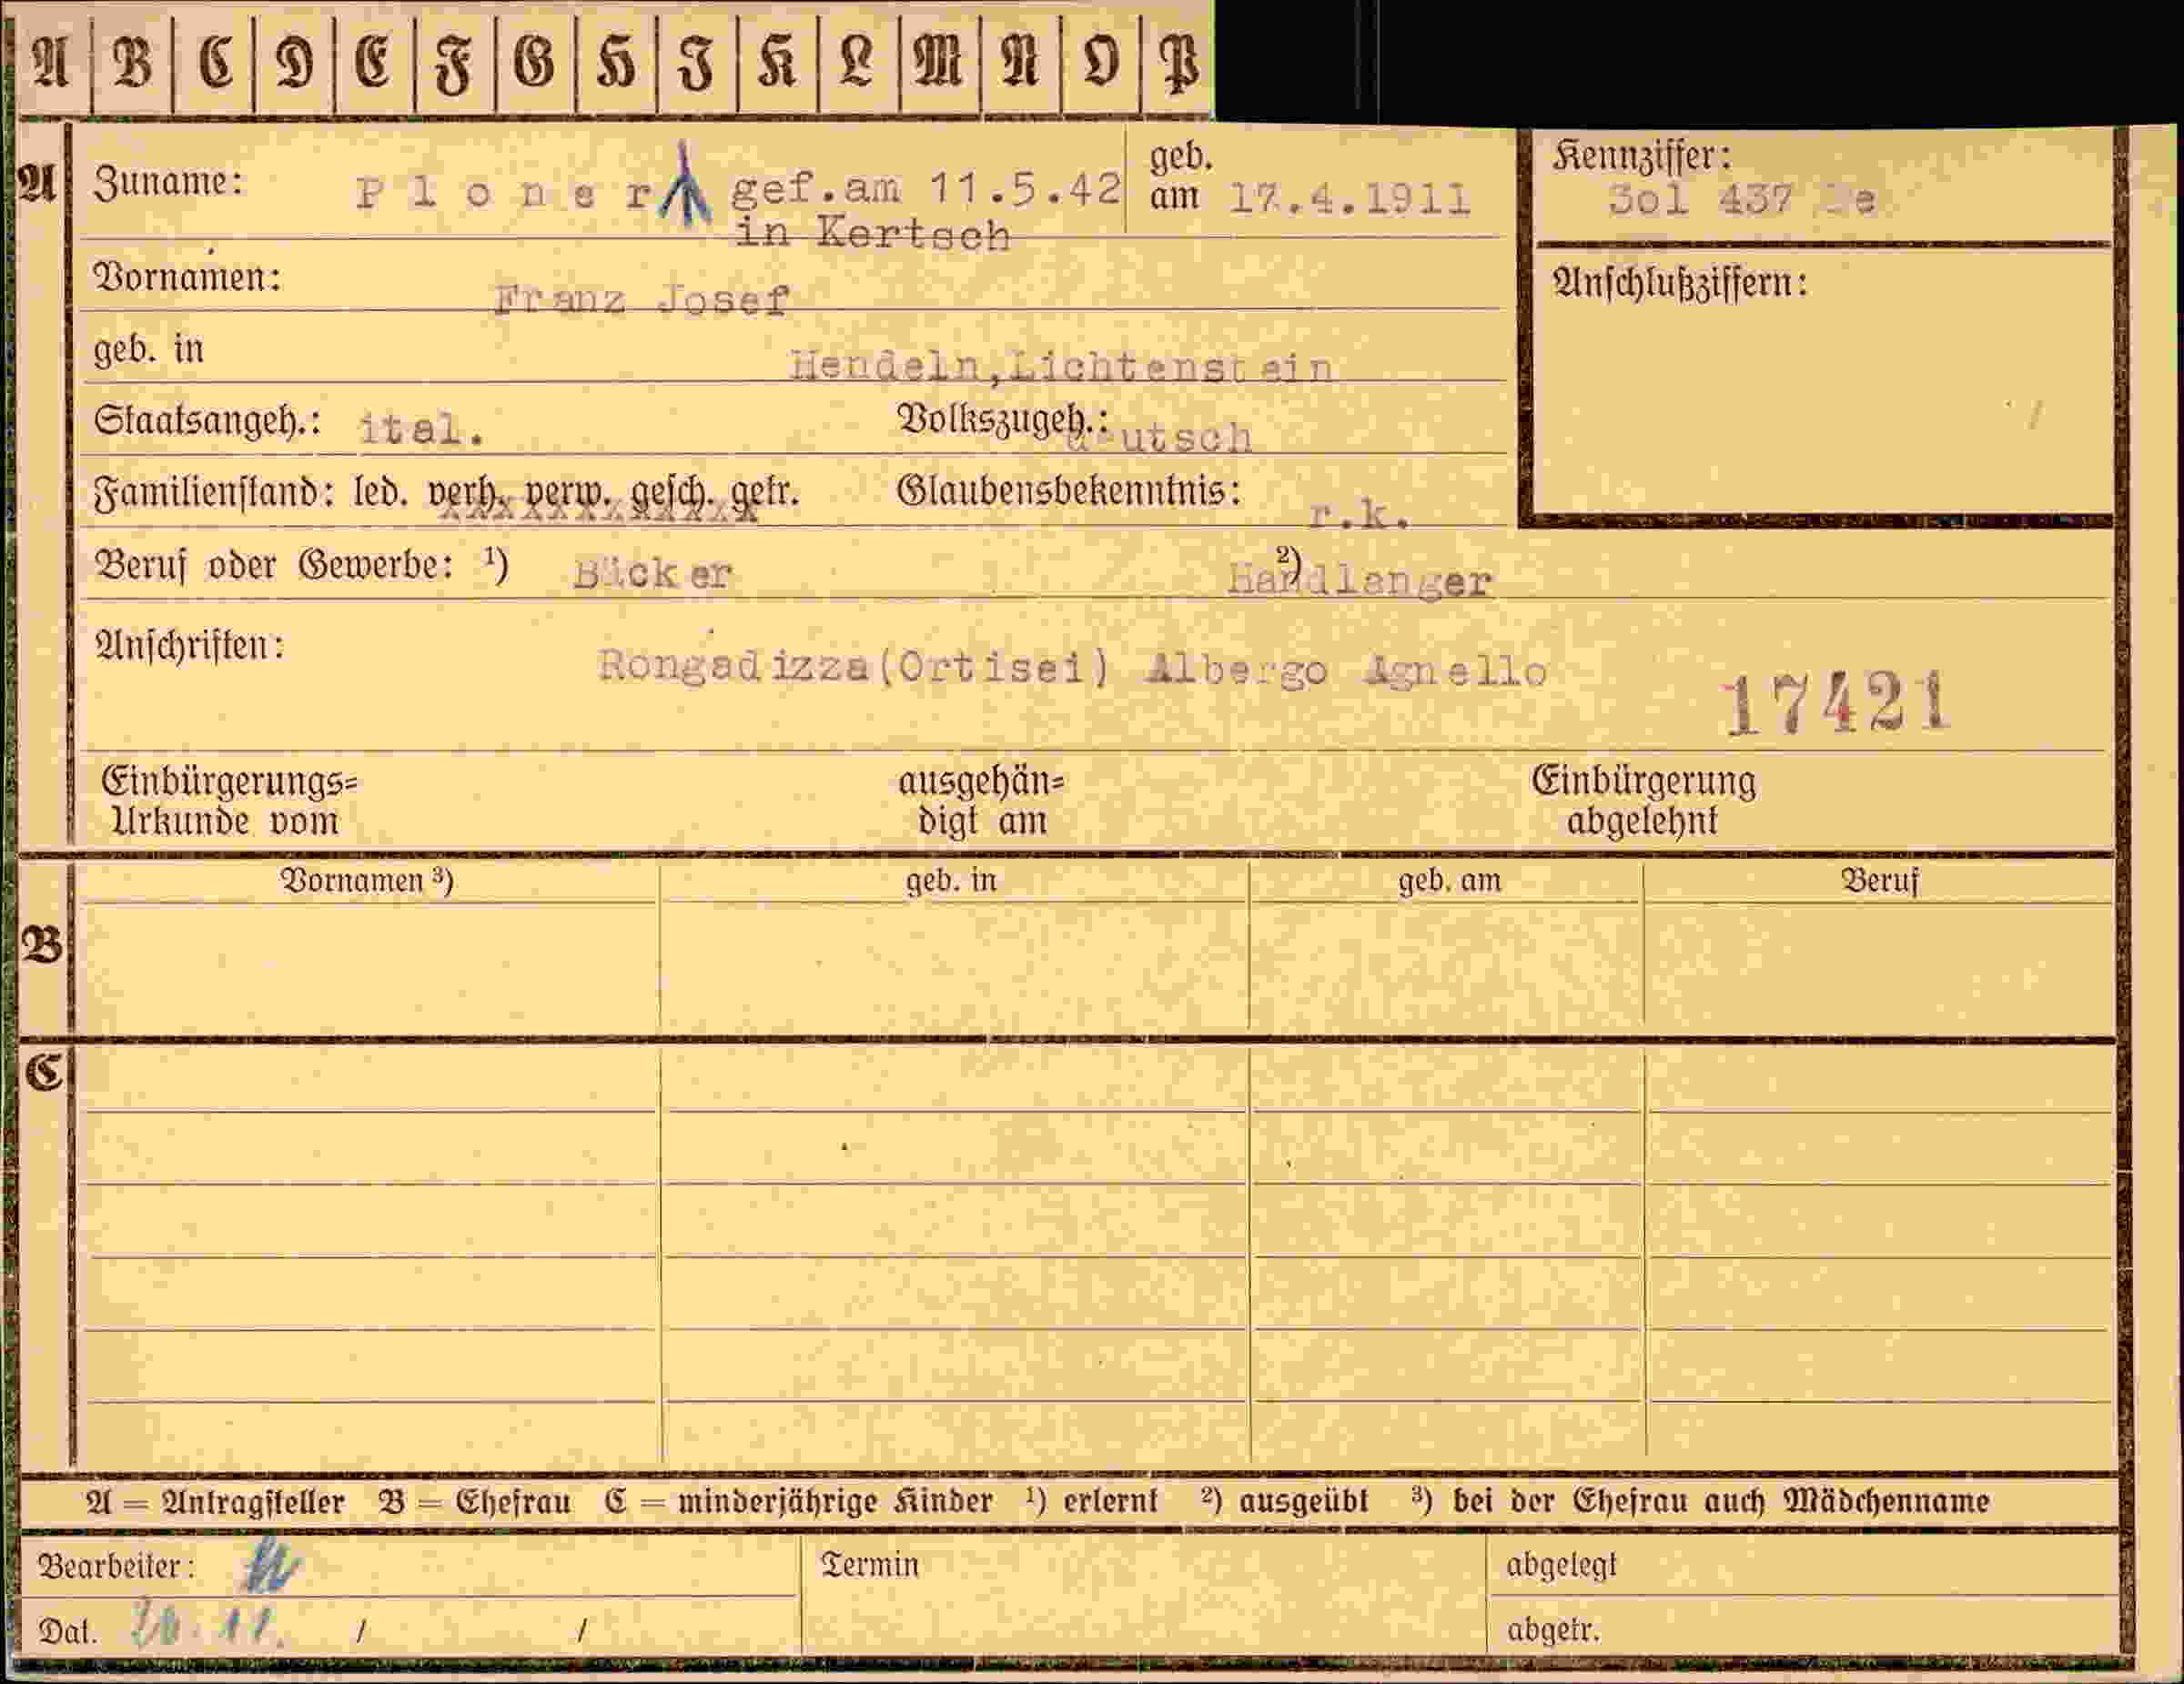 A B C D E F G H I K L M N O P
A Zuname: Ploner gef.am 11.5.42 geb. am 17.4.1911 Kennziffer:
in Kertsch Sol 437
Vornamen: Franz Josef Anschlußziffern:
geb. in Hendeln,Lichtenstein
Staatsangeh.: ital. Volkszugeh.: deutsch
Familienstand: led. verh. verw. gesch. getr. Glaubensbekenntnis: r.k.
Beruf oder Gewerbe: 1) Bäcker 2) Handlanger
Anschriften: Rongadizza(Ortisei) Albergo Agnello
17421
Einbürgerungs= ausgehän= Einbürgerung
Urkunde vom digt am abgelehnt
Vornamen 3) geb. in geb. am Beruf
B
C
A = Antragsteller B = Ehefrau C = minderjährige Kinder 1) erlernt 2) ausgeübt 3) bei der Ehefrau auch Mädchenname
Bearbeiter: Termin abgelegt
Dat. 20.11. / / abgetr.